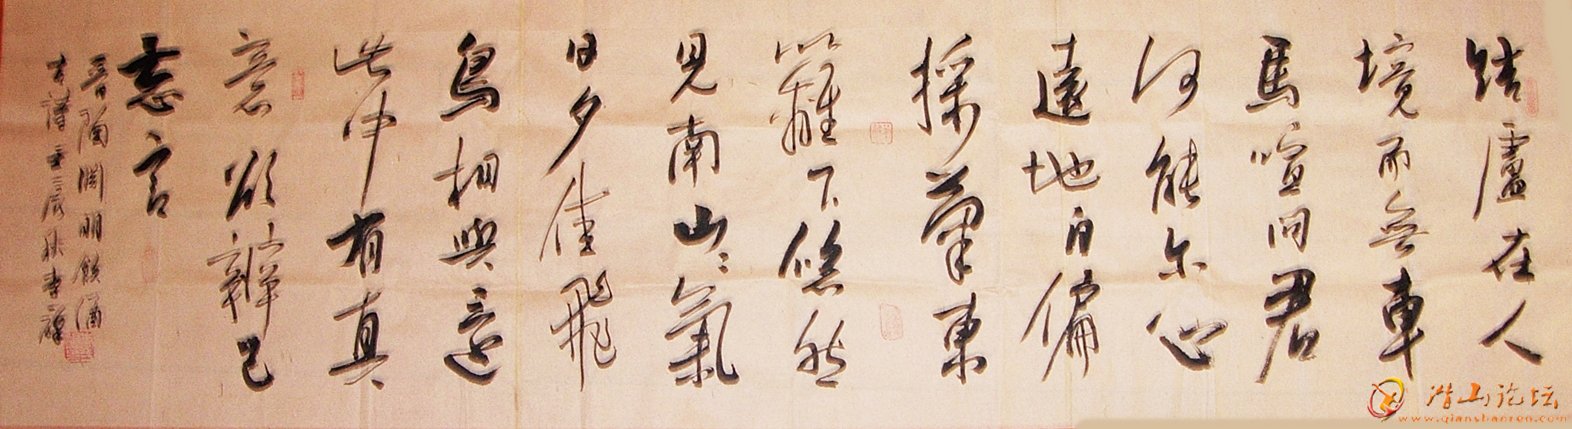 結廬在人
境而無車
馬喧問君
何能尔心
遠地自偏
採菊東
籬下悠然
見南山々氣
日夕佳飛
鳥相與還
此中有真
意欲辨已
忘言
晉陶淵明飲酒
壬辰秋
潜山论坛
www.qianshanren.com